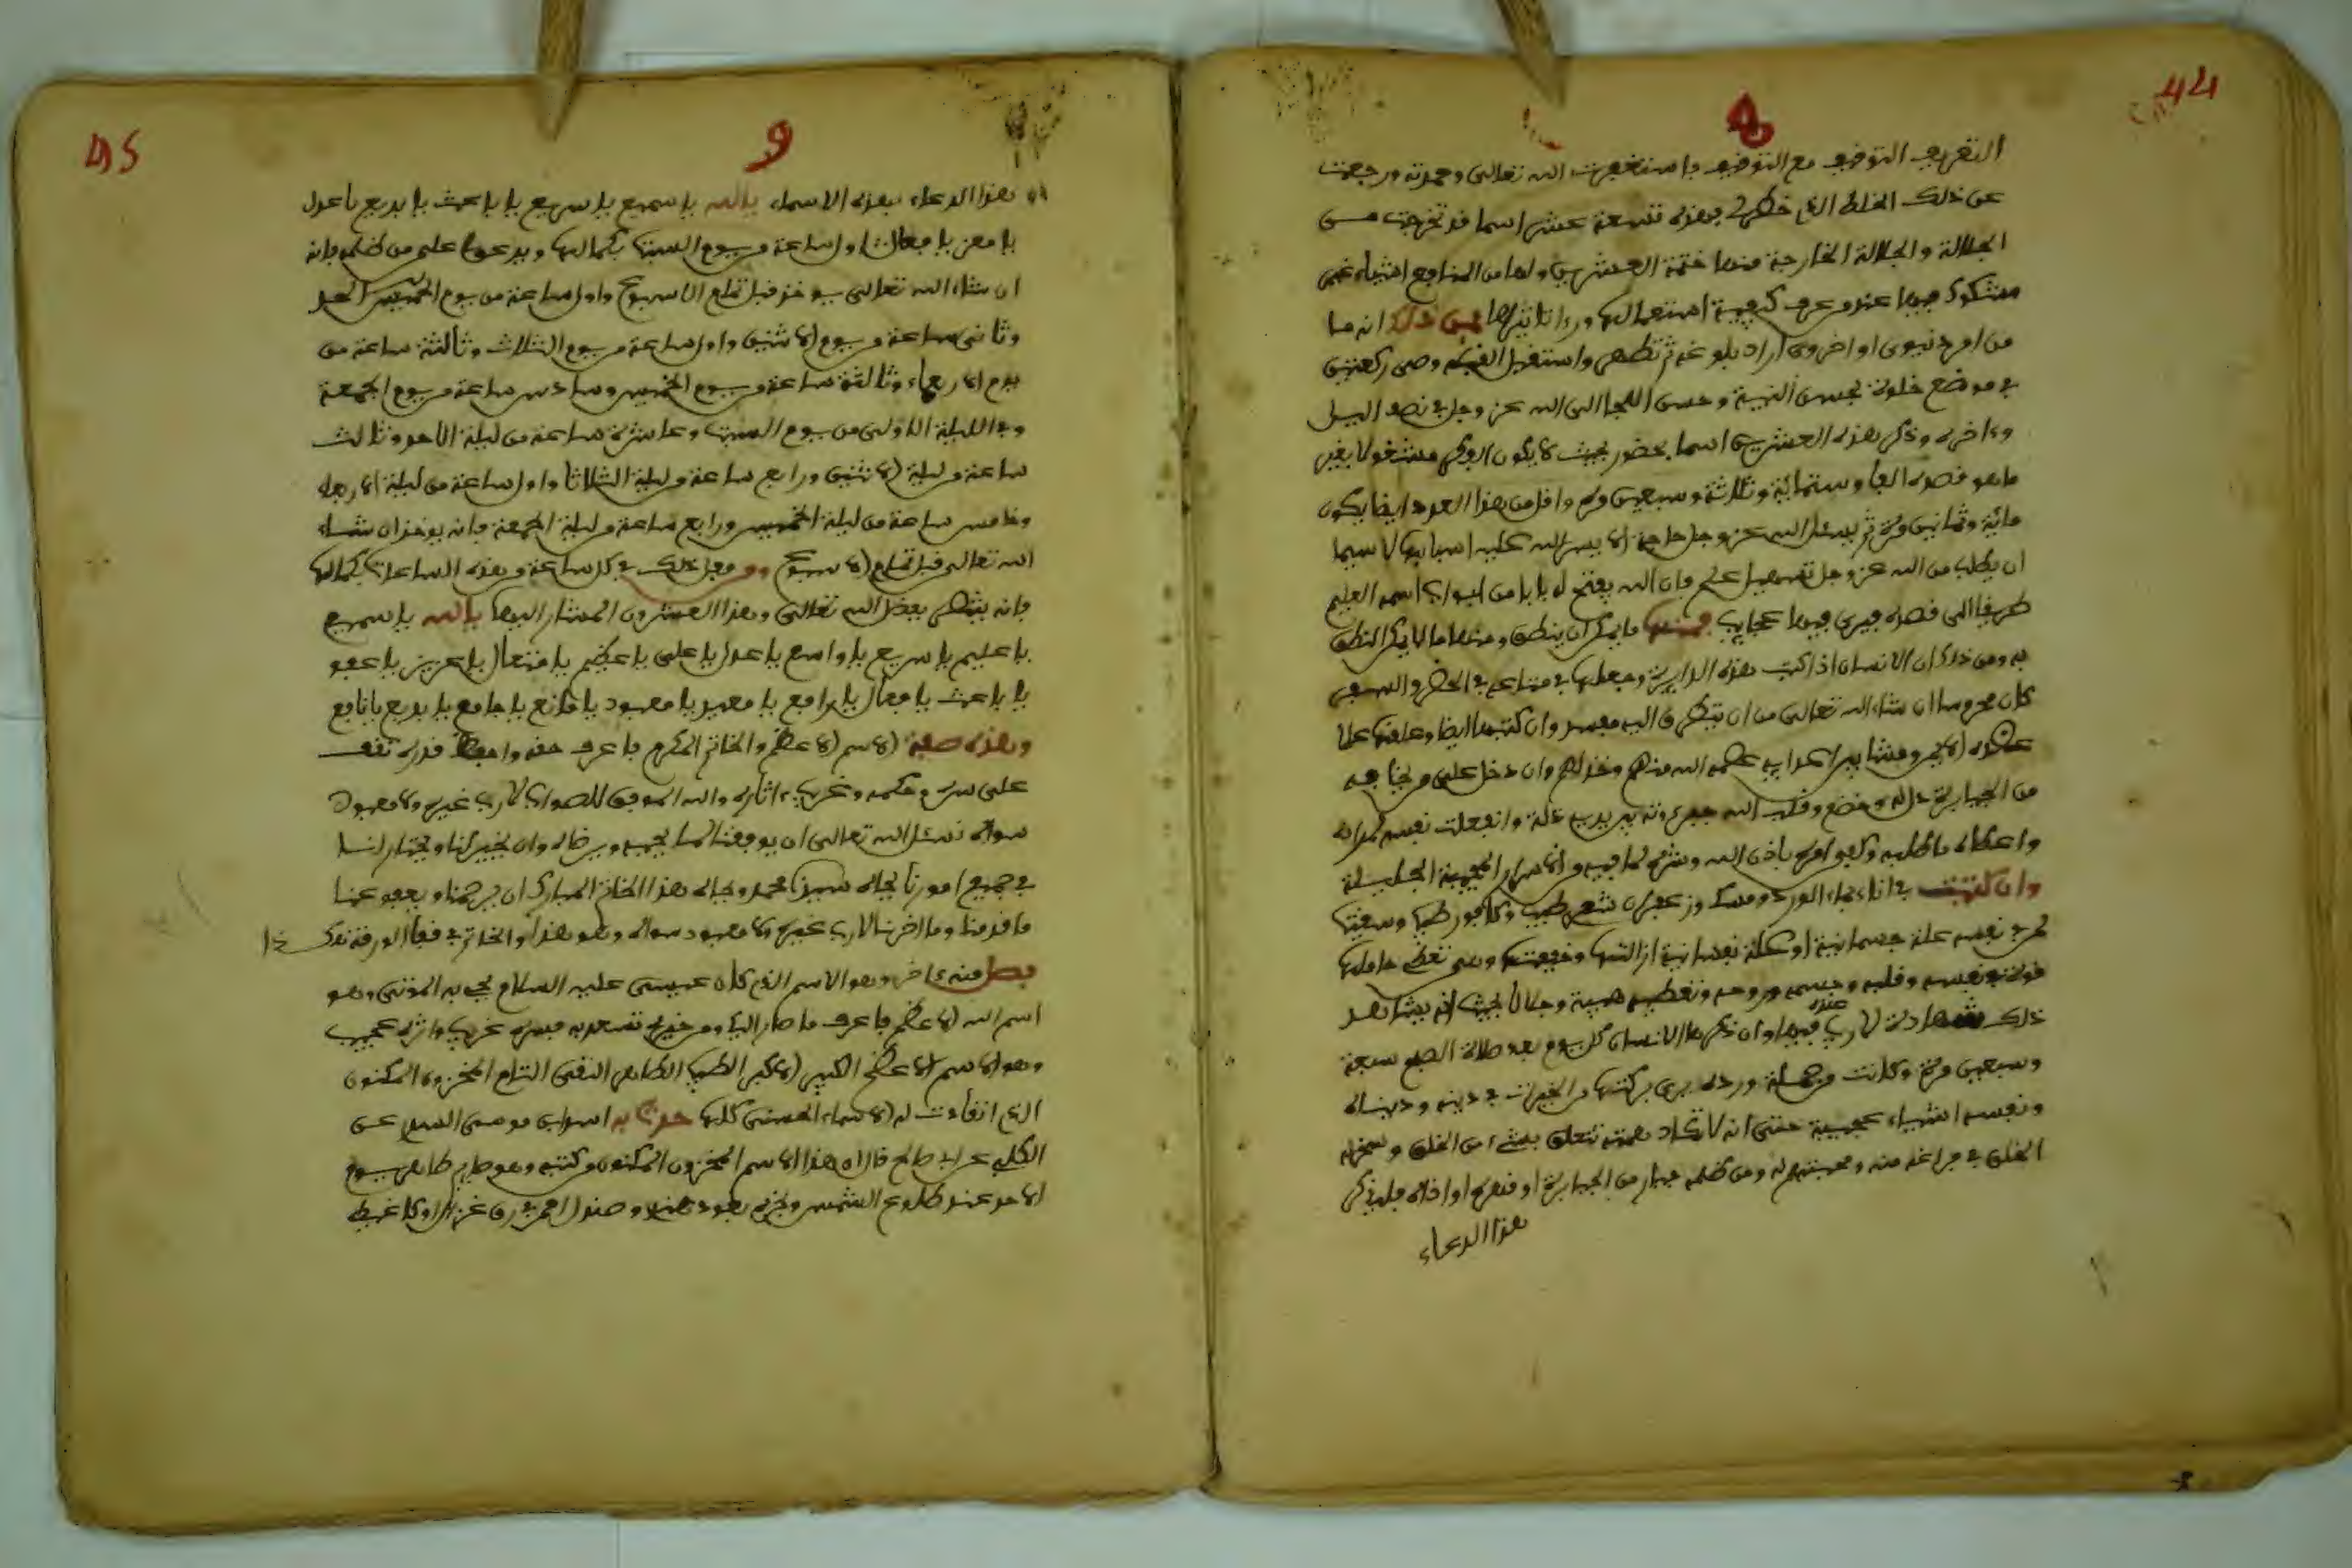 44
التعريف التوفيق مع التوفيق فاستغفرت الله تعالى وحمدته ورجعت
عن ذلك الخلط الذي خطر لي فهذه تسعة عشر اسما قد تخرجت مـن
الجلالة والجلالة الخارجة منها ختمة العشرين ولها من المنافع اشياء غير
مشكوك فيها عند من عرف كيفية استعمالها ورءا تاثيرها فمن ذلك انه ما
من امر دنيوي او اخروي اراد بلوغه ثم تطهر واستقبل القبلة وصلى ركعتين
في موضع خلوة بحسن النية وحسن اللجا الى الله عز وجل في نصف اليل
وءاخره وذكر هذه العشرين اسما بحضور بحيث لا يكون الوقت مشغولا بغير
ما هو قصده الفا وستمائة وثلاثة وسبعين مرة واقل من هذا العدد ايضا يكون
مائة وثمانين مرة ثم يسئل الله عز وجل حاجة الا يسر الله عليه اسبابها لا سيما
ان يطلب من الله عز وجل تسهيل علم فان الله يفتح له بابا من ابواب اسمه العليم
طريقا الى قصده فيرى فيها عجايب فمنها ما يمكن ان ينطق ومنها ما لا يمكن النطق
به ومن ذلك ان الانسان اذا كتب هذه الدايرة وجعلها في متاعه في الحضر والسفر
كان محروسا ان شاء الله تعالى من ان يتطرق اليه مفسد وان كتبها ايضا وعلقها على
عضده الايمن ومشا بين اعدايه عصمه الله منهم وخذلهم وان دخل على من يخافه
من الجبابرة ذل له وخضع وقلب الله جبروته بين يديه ذلة وانفعلت نفسه لمراده
واعطاه ما طلبه وكفي امره باذن الله وشرح لما فيه من الاسرار العجيبة الجليلة
وان كتبت في اناء بماء الورد ومسك وزعفران شعر طيب وكافور طيب وسقيتها
لمن في نفسه علة جسمانية او علة نفسانية ازالتها وخففتها وهي تعظم حاملها
قوة في نفسه وقلبه وجسمه وروحه وتعطيه هيبة وجلالا بحيث انه يشاهد
ذلك شهادة لا ريب عنده فيها وان ذكرها الانسان كل يوم بعد صلاة الصبح سبعة
وسبعين مرة وكانت من جملة ورده يرى بركتها من الخيرات في دينه ودنياه
ونفسه اشياء عجيبة حتى انه لا تكاد همته تتعلق بشيء من الخلق وسخر له
الخلق في مراغه منه ومحبتهم له ومن ظلمه جبار من الجبابرة او قهره او اذاه فليذكر
هذا الدعاء
45
و
هذا الدعاء بهذه الاسماء يا الله يا سميع يا سريع يا باعث يا بديع يا عدل
يا معز يا فعال اول ساعة من يوم السبت بكمالها ويدعوا على من ظلمه فانه
ان شاء الله تعالى يوخذ قبل تمام الاسبوع واول ساعة من يوم الخميس الحد
وثاني ساعة من يوم الاثنين واول ساعة من يوم الثلاث وثالثة ساعة من
يوم الاربعاء وثالثة ساعة من يوم الخميس وسادس ساعة من يوم الجمعة
وفي الليلة الاولى من يوم السبت وعاشرة ساعة من ليلة الاحد وثالث
ساعة من ليلة الاثنين ورابع ساعة من ليلة الثلاثا واول ساعة من ليلة الاربعا
وخامس ساعة من ليلة الخميس ورابع ساعة من ليلة الجمعة فانه يوخذ ان شاء
الله تعالى قبل تمام الاسبوع ومن فعل ذلك في كل ساعة من هذه الساعات بكمالها
فانه ينتظر بفضل الله تعالى وهذا العشرون المشار اليها يا الله يا سميع
يا عليم يا سريع يا واسع يا عدل يا علي يا عظيم يا متعال يا عزيز يا عفو
يا باعث يا فعال يا رافع يا معيد يا معبود يا مانع يا جامع يا بديع يا نافع
وهذه صفة الاسم الاعظم والخاتم المكرم فاعرف حقه واحفظ قدره تقف
على سره وحكمه وغريب ءاثاره والله الموفق للصواب لا رب غيره ولا معبود
سواه نسئل الله تعالى ان يوفقنا لما يحبه ويرضاه وان يخير لنا ويختار لنا
في جميع امورنا بجاه سيدنا محمد وبجاه هذا الخاتم المبارك ان يرحمنا ويعفو عنا
ما قدمنا وما اخرنا لا رب غيره ولا معبود سواه وهو هذا والخاتم في قفا الورقة هكـذا
فصل منه ءاخر وهو الاسم الذي كان عيسى عليه السلام يحيي به الموتى وهو
اسم الله الاعظم فاعرف ما صار اليك ومن خير تسعد به فسره غريب واثره عجيب
وهو الاسم الاعظم الكبير الاكبر الطيب الطاهر النقي التام المخزون المكنون
الذي انقادت له الاسماء الحسنى كلها حدثنا به اسوابي موسى السد عن
الكلبي عن ابي صالح قال ان هذا الاسم المخزون المكنون من كتبه وهو صايم طاهر يوم
الاحد عند طلوع الشمس وبخره بعود هندي وصندل احمر في رق غزال او كاغيط